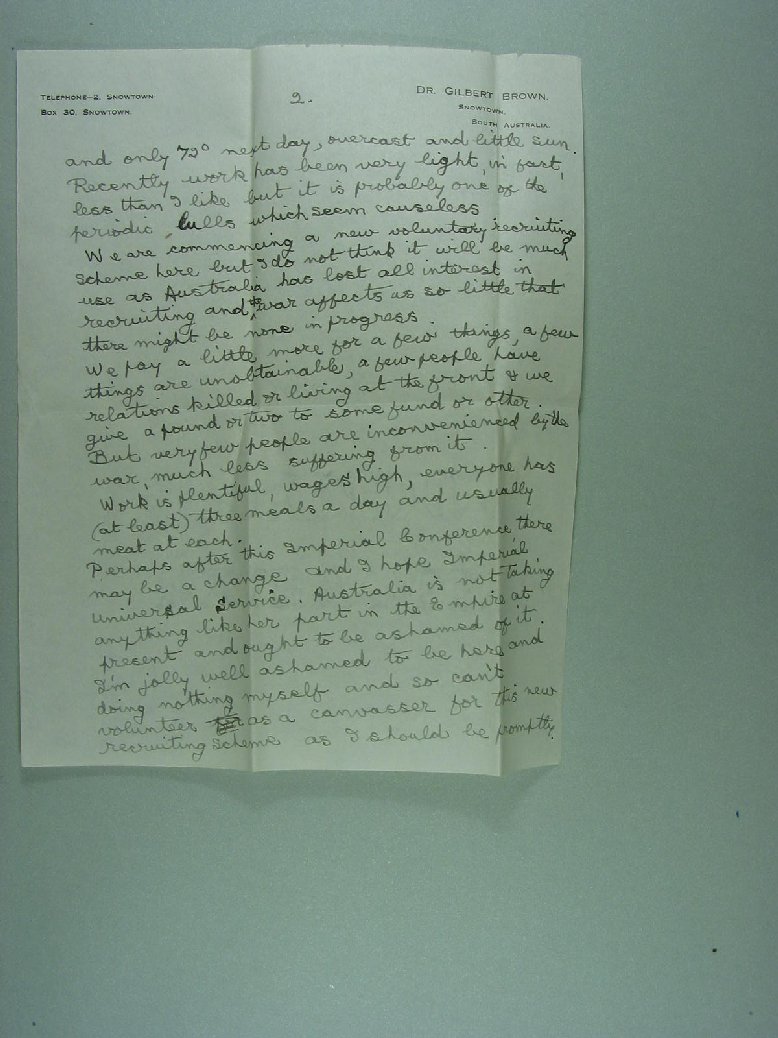 TELEPHONE—2. SNOWTOWN
BOX 30. SNOWTOWN.
2.
DR. GILBERT BROWN.
SNOWTOWN,
SOUTH AUSTRALIA.
and only 72° next day, overcast and little sun.
Recently work has been very light, in fact,
less than I like but it is probably one of the
periodic lulls which seem causeless
We are commencing a new voluntary recruiting
scheme here but I do not think it will be much
use as Australia has lost all interest in
recruiting and war affects us so little that
there might be none in progress.
We pay a little more for a few things, a few
things are unobtainable, a few people have
relations killed or living at the front & we
give a pound or two to some fund or other.
But very few people are inconvenienced by the
war, much less suffering from it.
Work is plentiful, wages high, everyone has
(at least) three meals a day and usually
meat at each.
Perhaps after this Imperial Conference there
may be a change and I hope Imperial
universal service. Australia is not taking
anything like her part in the Empire at
present and ought to be ashamed of it.
I'm jolly well ashamed to be here and
doing nothing myself and so can't
volunteer as a canvasser for this new
recruiting scheme as I should be promptly